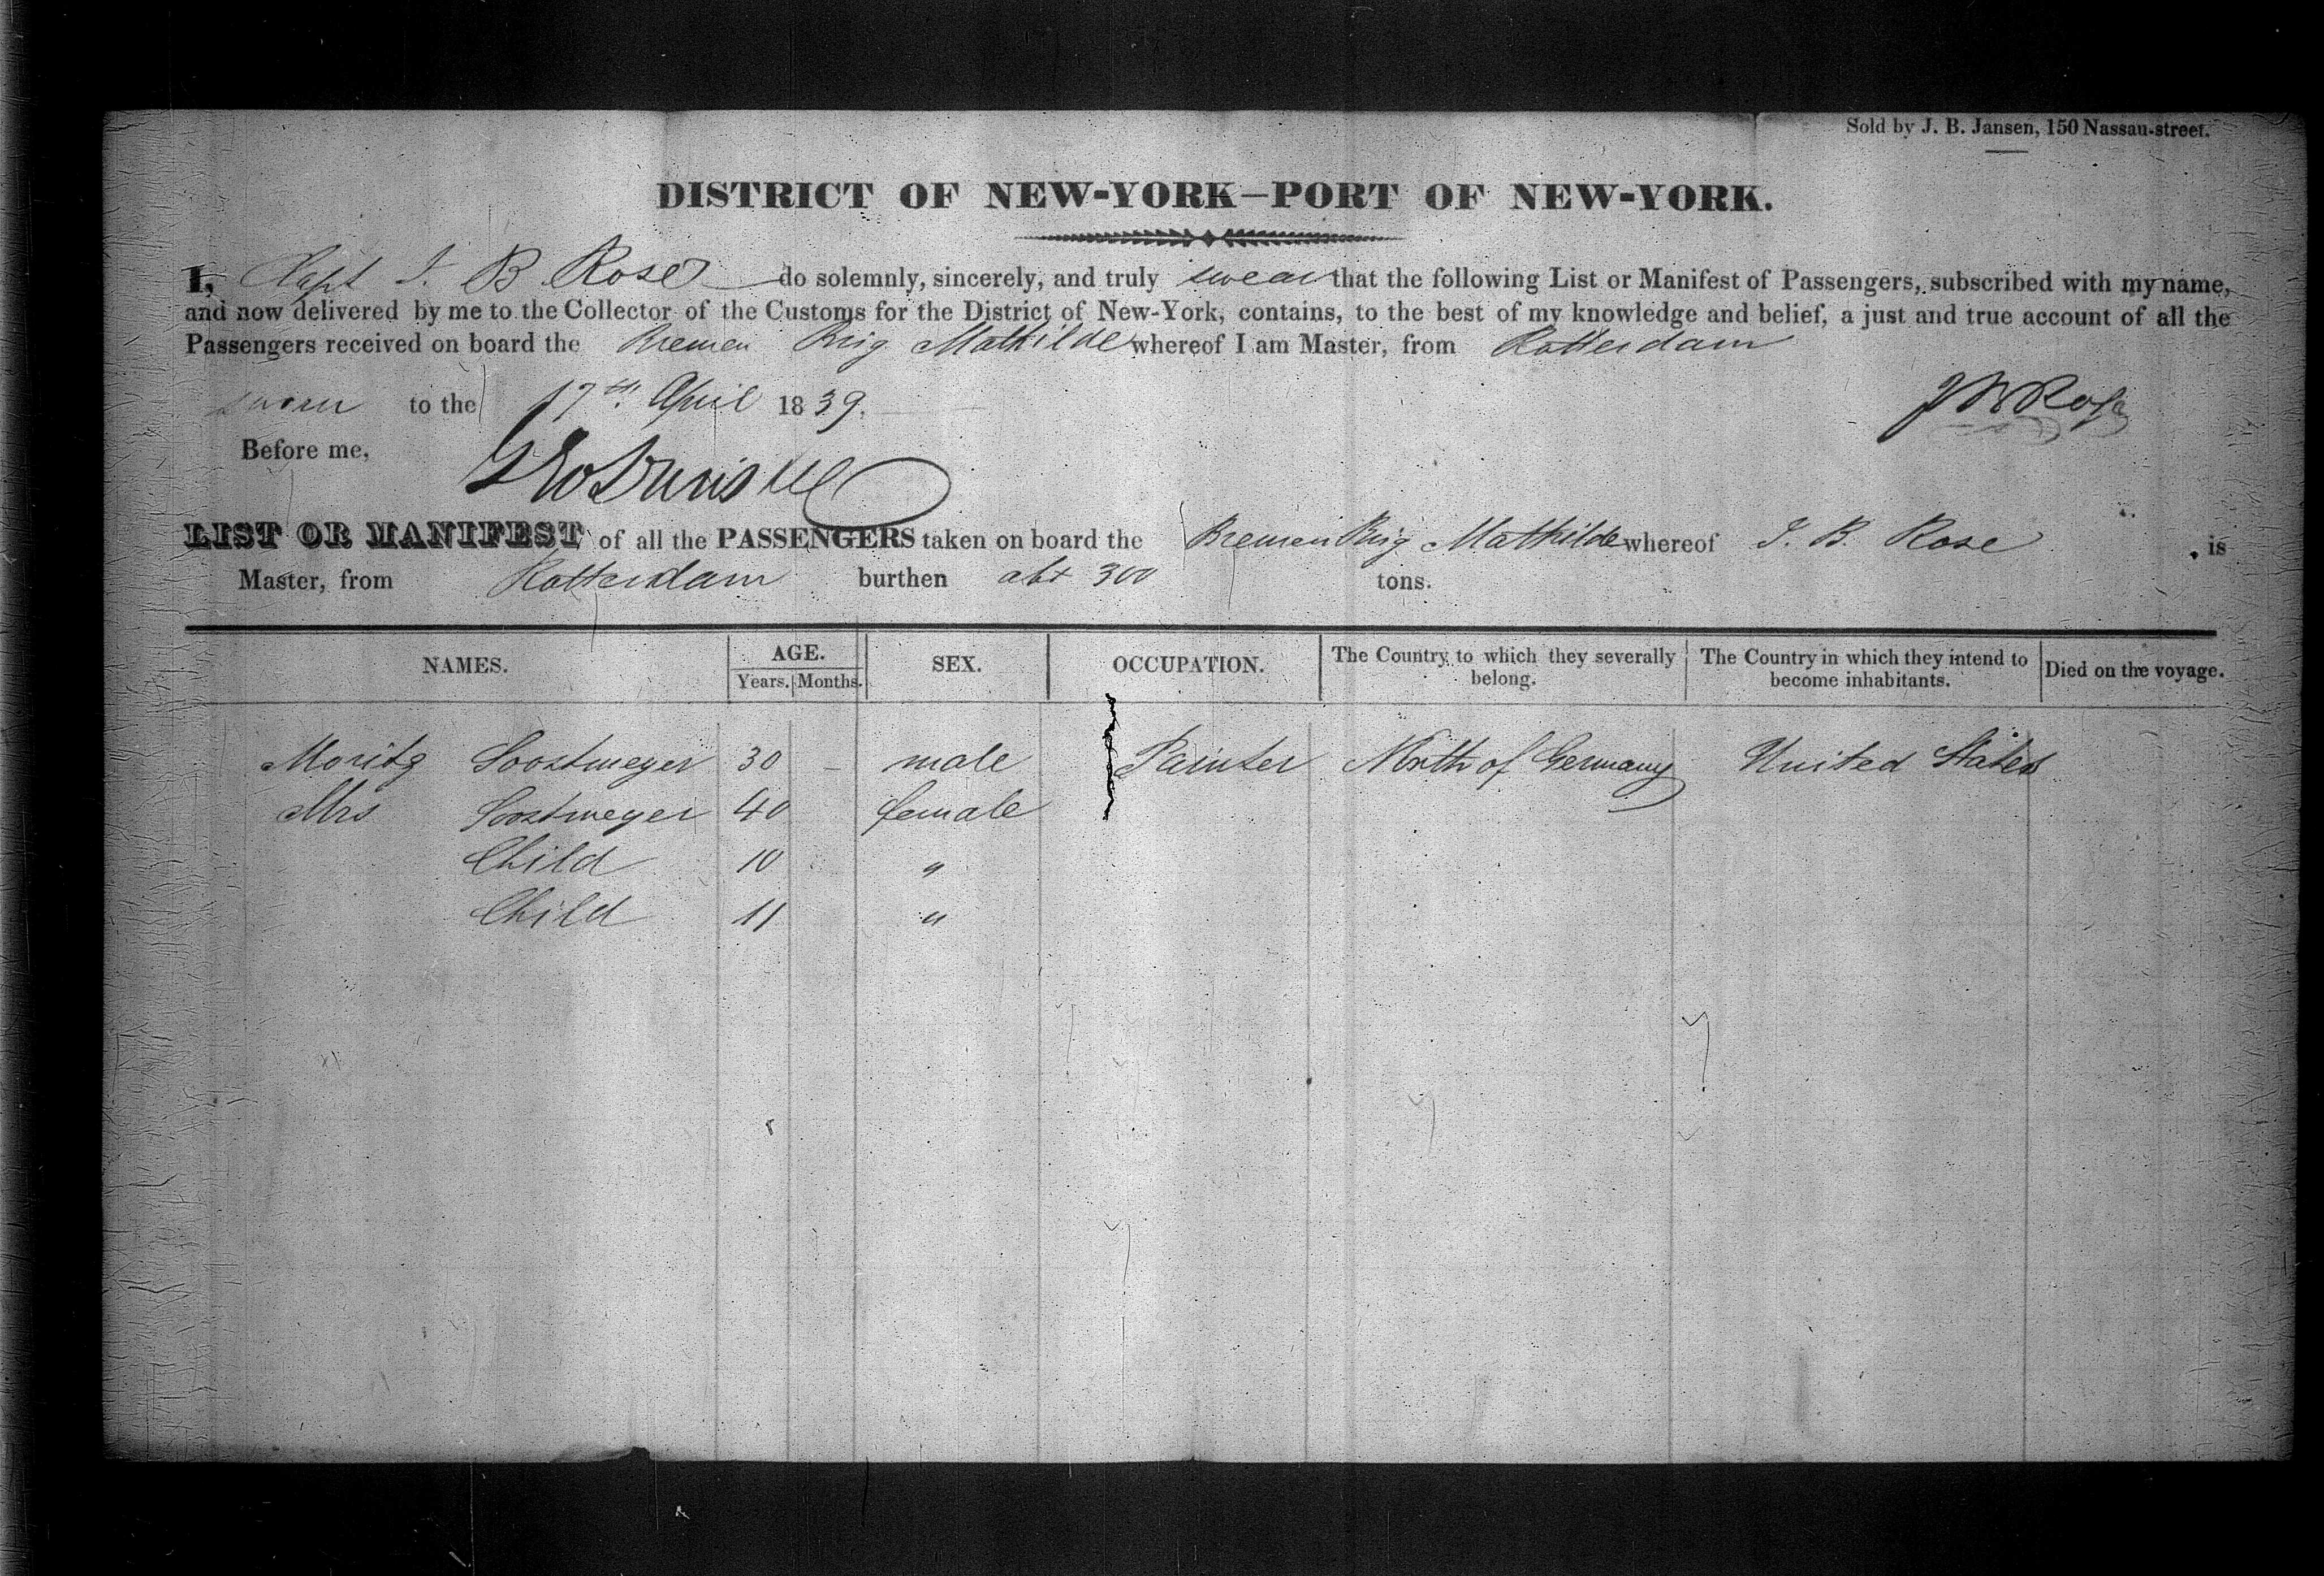 Sold by J. B. Jansen, 150 Nassau-street.
DISTRICT OF NEW-YORK—PORT OF NEW-YORK.
I, Capt J. B Rose do solemnly, sincerely, and truly swear that the following List or Manifest of Passengers, subscribed with my name,
and now delivered by me to the Collector of the Customs for the District of New-York, contains, to the best of my knowledge and belief, a just and true account of all the
Passengers received on board the Bremen Brig Mathilde whereof I am Master, from Rotterdam
sworn to the 17th April 1839.
Before me,
LIST OR MANIFEST of all the PASSENGERS taken on board the Bremen Brig Mathilde whereof J. B. Rose is
Master, from Rotterdam burthen abt 300 tons.
NAMES. AGE. SEX. OCCUPATION. The Country to which they severally belong. The Country in which they intend to become inhabitants. Died on the voyage.
Years. Months.
Moritz Soostmeyer 30 – male Painter North of Germany United States
Mrs Soostmeyer 40 female
Child 10 "
Child 11 "